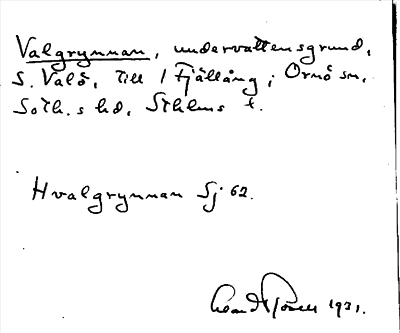 Valgrynnan, undervattensgrund,
S. Valö, till 1 Fjällång; Ornö sn,
Soth.s hd, Sthlms l.
Hvalgrynnan Sj 62.
1931.